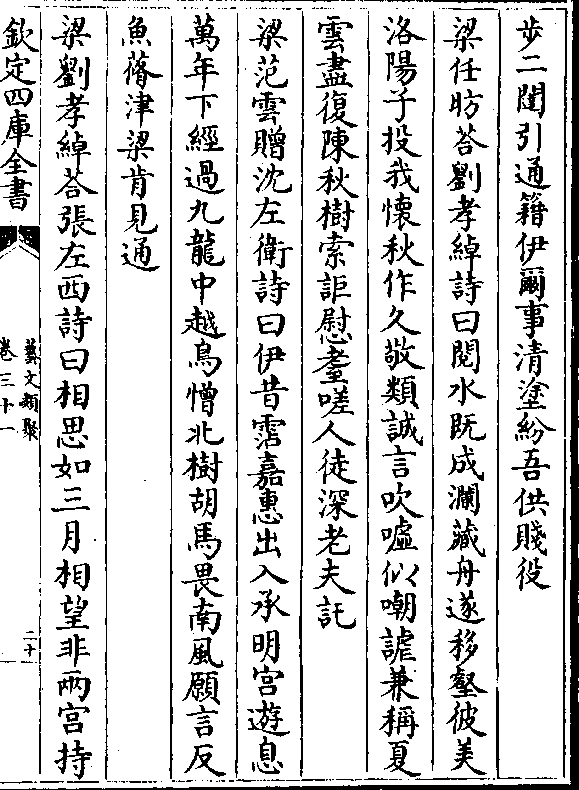 步二闈引通籍伊爾事清塗紛吾供賤役
梁任昉荅劉孝綽詩曰閱水既成瀾藏舟遂移壑彼美
洛陽子投我懷秋作久敬類誠言吹噓似嘲謔兼稱夏
雲盡復陳秋樹索詎慰耋嗟人徒深老夫託
梁范雲贈沈左衛詩曰伊昔霑嘉惠出入承明宮遊息
萬年下經過九龍中越鳥憎北樹胡馬畏南風願言反
魚蓨津梁肯見通
梁劉孝綽荅張左西詩曰相思如三月相望非兩宮持
欽定四庫全書
藝文類聚
卷三十一
二十